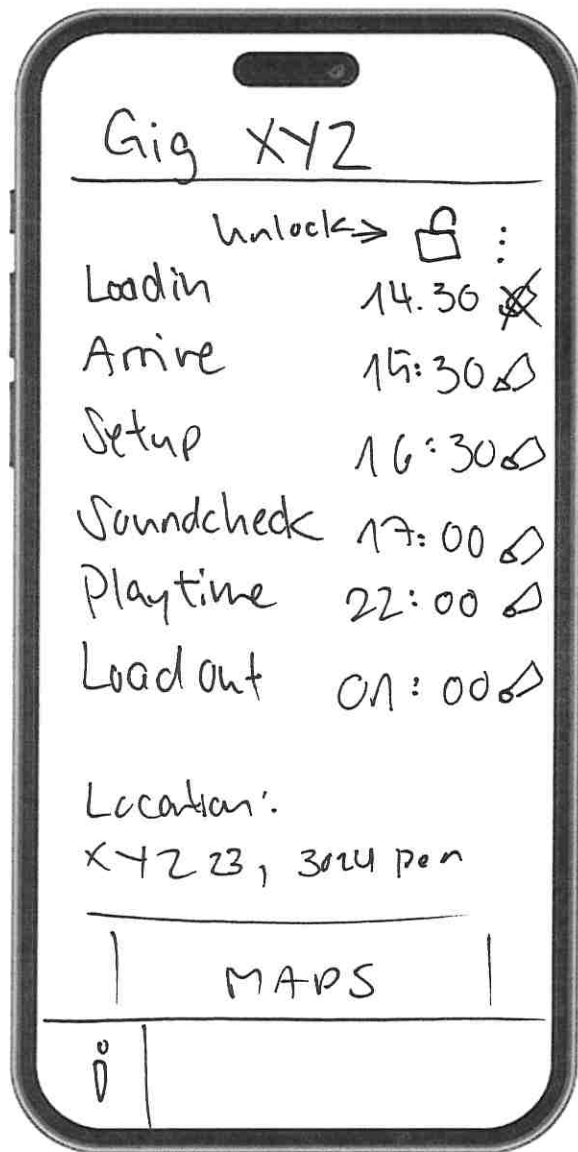 Gig XYZ
Unlock → :
Loadin 14.30
Arrive 15:30
Setup 16:30
Soundcheck 17:00
Playtime 22:00
Load out 01:00
Location:
XYZ 23, 3024
MAPS
i